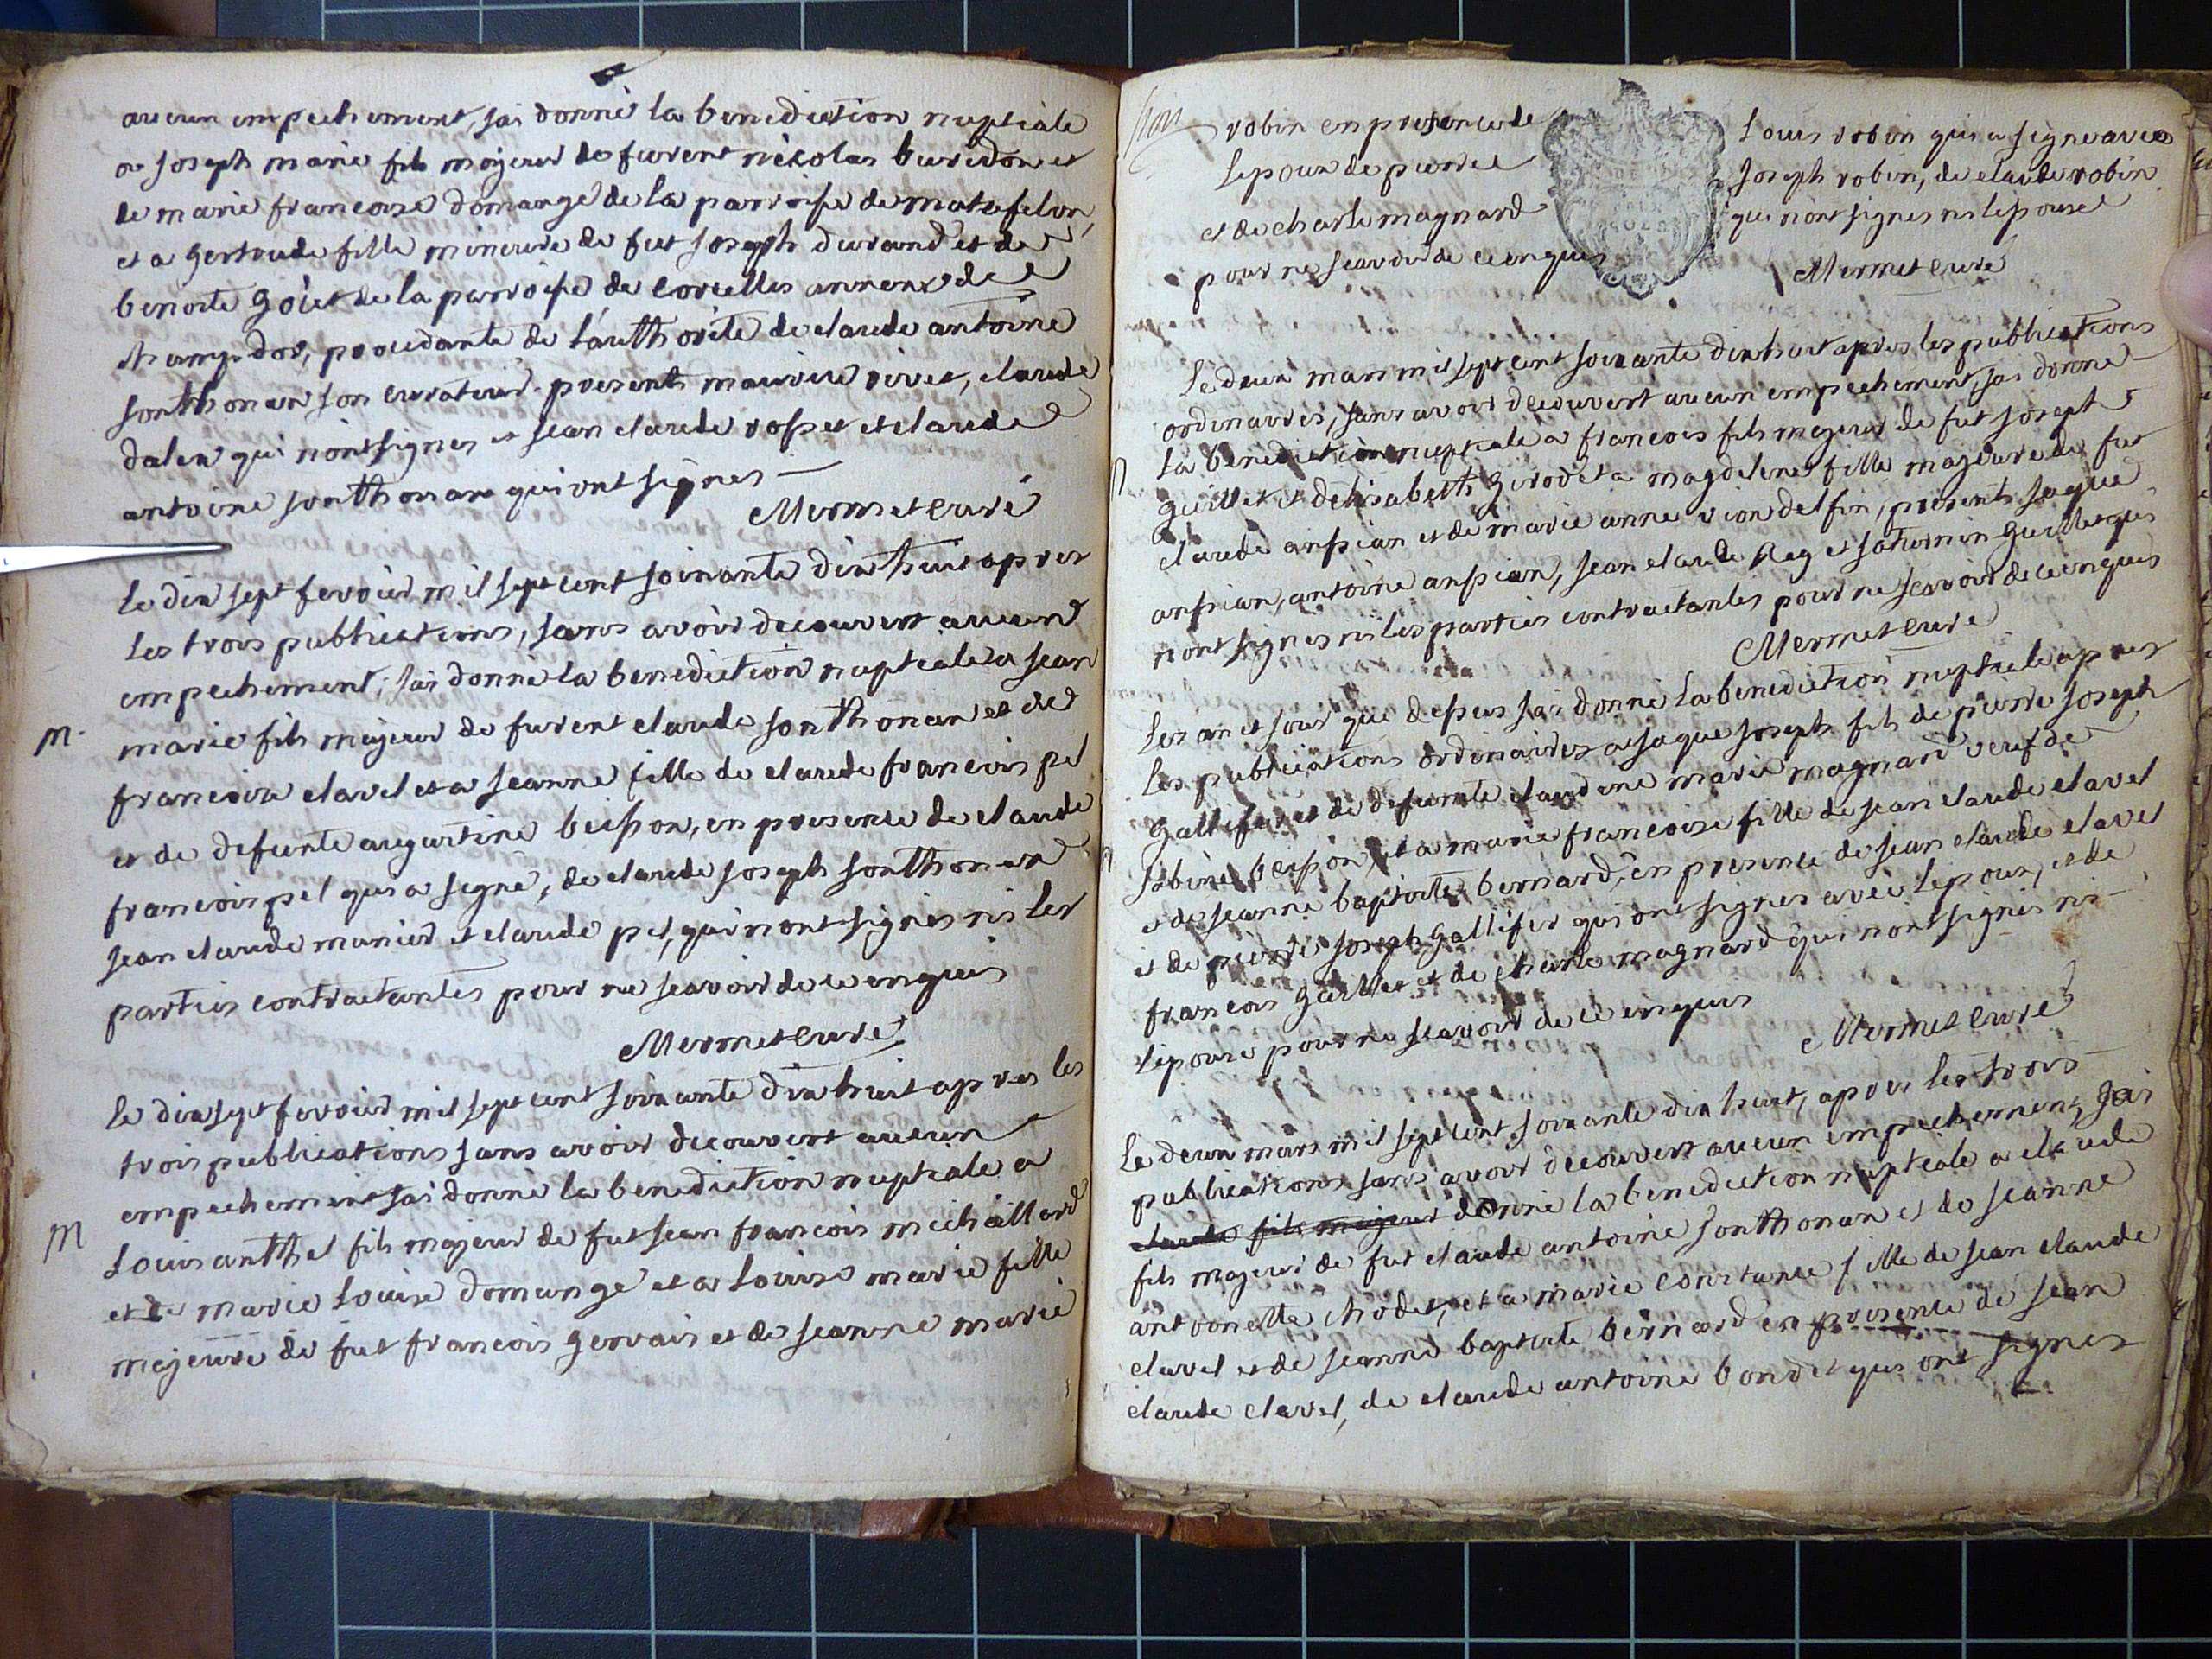 aucun empechement, jai donné la benediction nuptiale
a joseph marie fils majeur de furent nicolas buridon et
de marie francoise domange de la parroisse de matafelon,
et a gertrude fille mineure de fut joseph durand et de
benoite goiet de la parroisse de corcelles annexe de
champdor, procedante de lauthorité de claude antoine
sonthonax son curateur. presents maurice rivet, claude
dalex qui niont signes et jean claude rosset et claude
antoine sonthonax qui ont signes
Mermet curé
Le dix sept fevrier mil sept cent soixante dix huit apres
les trois publications, sans avoir decouvert aucun
empechement, jai donné la benediction nuptiale a jean
M. marie fils majeur de furent claude sonthonax et de
francoise clavel et a jeanne fille de claude francois pel
et de defunte augustine beisson, en presence de claude
francois pel qui a signé, de claude joseph sonthonax
jean claude munier et claude pel, qui nont signés ni les
parties contractantes pour ne scavoir de ce enquis
Mermet curé
Le dix sept fevrier mil sept cent soixante dix huit apres les
trois publications sans avoir decouvert aucun
empechement jai donné la benediction nuptiale a
M Louis anthel fils majeur de fut jean francois michaillard
et de marie Louise domange et a Louise marie fille
majeure de fut francois gervais et de jeanne marie
robin en presence de Louis robin qui a signe avec
lepoux de pierre joseph robin, de claude robin
et de charle magnard qui niont signes ni lepouse
pour ne scavoir de ce enquis Mermet curé
Le deux mars mil sept cent soixante dix huit apres les publications
ordinaires, sans avoir decouvert aucun empechement, jai donné
la benediction nuptiale a francois fils majeur de fut joseph
guillet et delisabeth girod et a magdelene fille majeure de fut
claude anssian et de marie anne rion delfin, presents jaque
anssian, antoine anssian, jean claude Rey et saturnin guillet qui
nont signes ni les parties contractantes pour ne scavoir de ce enquis
Mermet curé
Les an et jour que dessus jai donné la benediction nuptiale apres
les publications ordinaires a jaque joseph fils de pierre joseph
gallifet et de defunte claudine marie magnard veuf de
sabine beisson, et a marie francoise fille de jean claude clavel
et de jeanne baptiste bernard, en presence de jean claude clavel
et de pierre joseph gallifet qui ont signes avec lepoux, et de
francois guillet et de charle magnard qui nont signés ni
lepouse pour ne scavoir de ce enquis
Mermet curé
Le deux mars mil sept cent soixante dix huit, apres les trois
publications sans avoir decouvert aucun empechement, jai
claude fils majeur donné la benediction nuptiale a claude
fils majeur de fut claude antoine sonthonax et de jeanne
antoinette chodet, et a marie constance fille de jean claude
clavel et de jeanne baptiste bernard en presence de jean
claude clavel, de claude antoine bondet qui ont signes